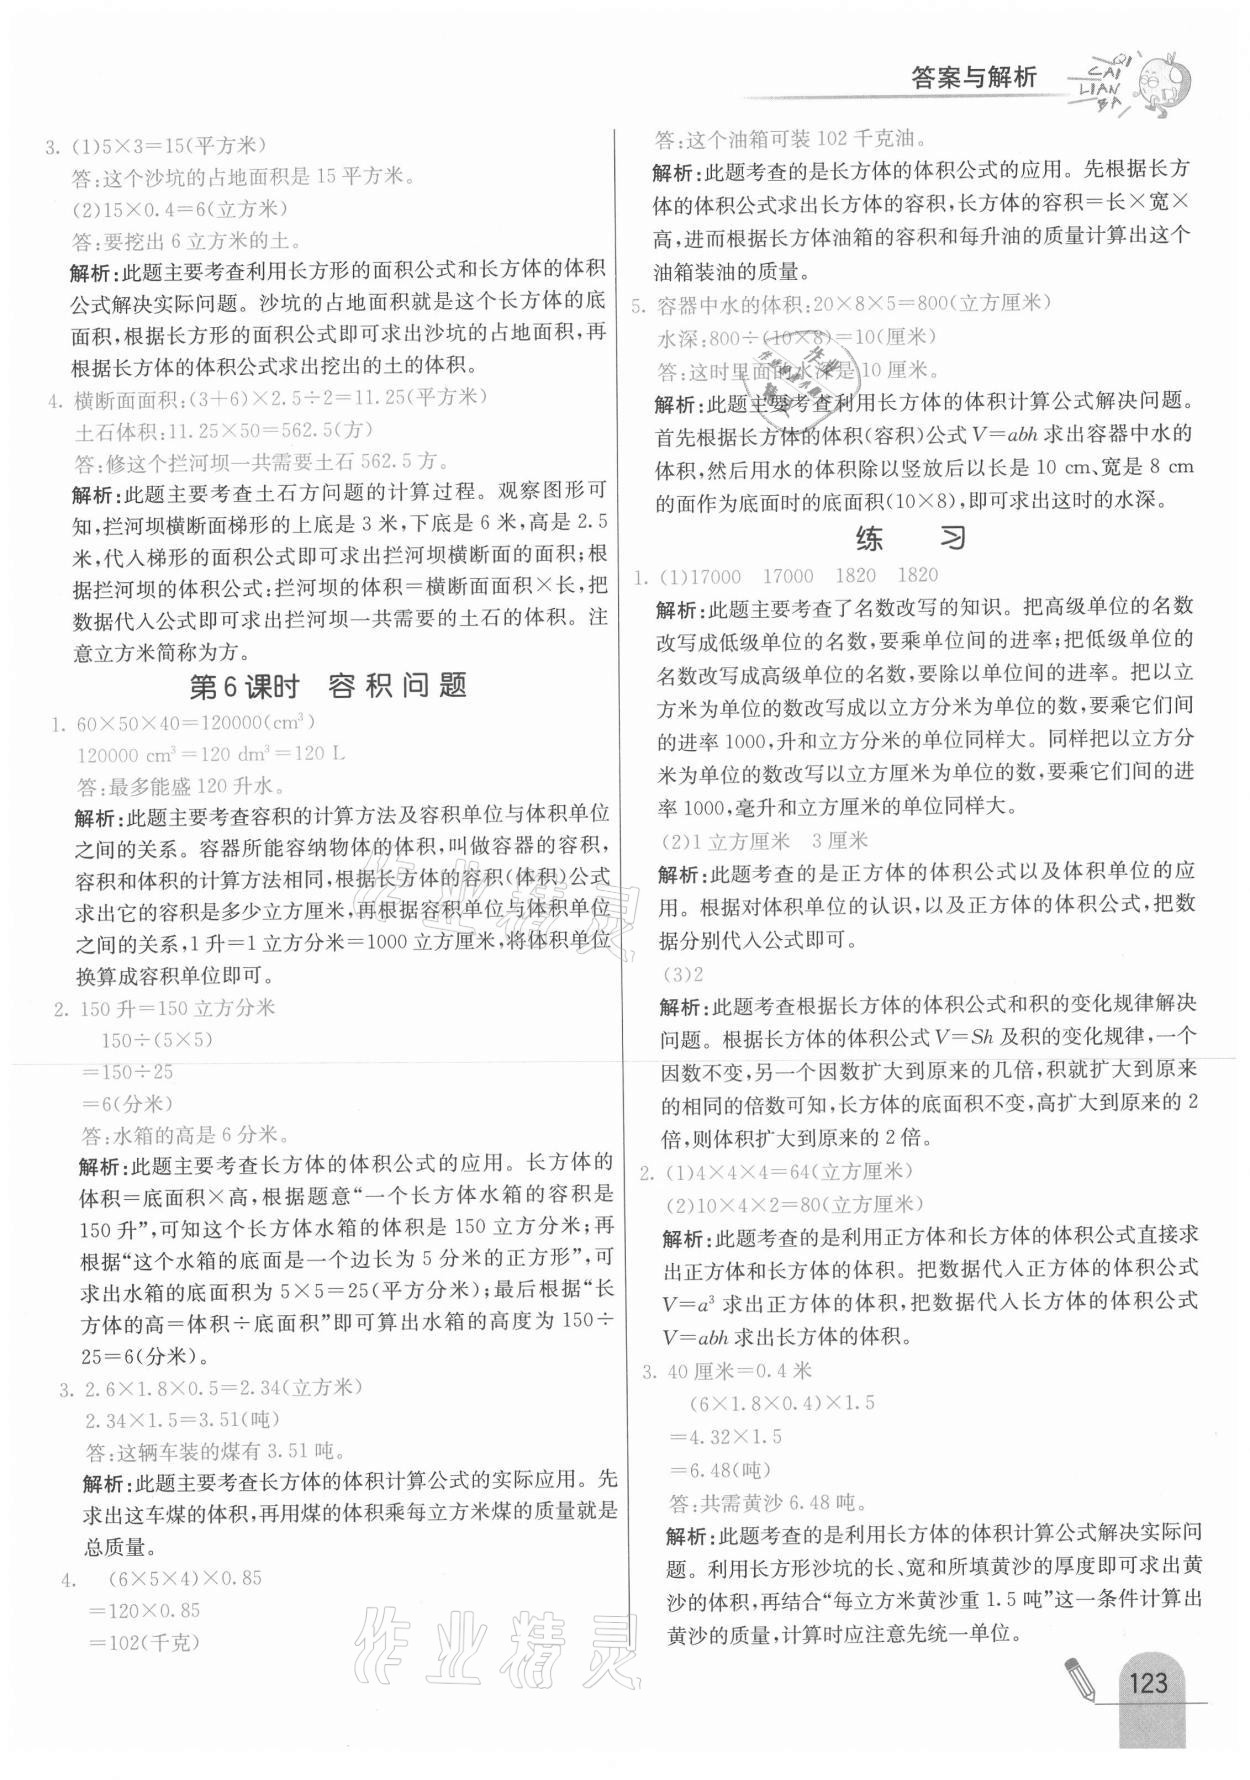 答案与解析
QI
CAI
LIAN
BA
3. (1)5×3=15(平方米)
答:这个沙坑的占地面积是 15 平方米。
(2)15×0.4=6(立方米)
答:要挖出 6 立方米的土。
解析:此题主要考查利用长方形的面积公式和长方体的体积
公式解决实际问题。沙坑的占地面积就是这个长方体的底
面积,根据长方形的面积公式即可求出沙坑的占地面积,再
根据长方体的体积公式求出挖出的土的体积。
4. 横断面面积:(3+6)×2.5÷2=11.25(平方米)
土石体积:11.25×50=562.5(方)
答:修这个拦河坝一共需要土石 562.5 方。
解析:此题主要考查土石方问题的计算过程。观察图形可
知,拦河坝横断面梯形的上底是 3 米,下底是 6 米,高是 2.5
米,代入梯形的面积公式即可求出拦河坝横断面的面积;根
据拦河坝的体积公式:拦河坝的体积=横断面面积×长,把
数据代入公式即可求出拦河坝一共需要的土石的体积。注
意立方米简称为方。
第 6 课时 容积问题
1. 60×50×40=120000(cm³)
120000 cm³=120 dm³=120 L
答:最多能盛 120 升水。
解析:此题主要考查容积的计算方法及容积单位与体积单位
之间的关系。容器所能容纳物体的体积,叫做容器的容积,
容积和体积的计算方法相同,根据长方体的容积(体积)公式
求出它的容积是多少立方厘米,再根据容积单位与体积单位
之间的关系,1 升=1 立方分米=1000 立方厘米,将体积单位
换算成容积单位即可。
2. 150 升=150 立方分米
150÷(5×5)
=150÷25
=6(分米)
答:水箱的高是 6 分米。
解析:此题主要考查长方体的体积公式的应用。长方体的
体积=底面积×高,根据题意“一个长方体水箱的容积是
150 升”,可知这个长方体水箱的体积是 150 立方分米;再
根据“这个水箱的底面是一个边长为 5 分米的正方形”,可
求出水箱的底面积为 5×5=25(平方分米);最后根据“长
方体的高=体积÷底面积”即可算出水箱的高度为 150÷
25=6(分米)。
3. 2.6×1.8×0.5=2.34(立方米)
2.34×1.5=3.51(吨)
答:这辆车装的煤有 3.51 吨。
解析:此题主要考查长方体的体积计算公式的实际应用。先
求出这车煤的体积,再用煤的体积乘每立方米煤的质量就是
总质量。
4. (6×5×4)×0.85
=120×0.85
=102(千克)
答:这个油箱可装 102 千克油。
解析:此题考查的是长方体的体积公式的应用。先根据长方
体的体积公式求出长方体的容积,长方体的容积=长×宽×
高,进而根据长方体油箱的容积和每升油的质量计算出这个
油箱装油的质量。
5. 容器中水的体积:20×8×5=800(立方厘米)
水深:800÷(10×8)=10(厘米)
答:这时里面的水深是 10 厘米。
解析:此题主要考查利用长方体的体积计算公式解决问题。
首先根据长方体的体积(容积)公式 V=abh 求出容器中水的
体积,然后用水的体积除以竖放后以长是 10 cm、宽是 8 cm
的面作为底面时的底面积(10×8),即可求出这时的水深。
练 习
1. (1)17000 17000 1820 1820
解析:此题主要考查了名数改写的知识。把高级单位的名数
改写成低级单位的名数,要乘单位间的进率;把低级单位的
名数改写成高级单位的名数,要除以单位间的进率。把以立
方米为单位的数改写成以立方分米为单位的数,要乘它们间
的进率 1000,升和立方分米的单位同样大。同样把以立方分
米为单位的数改写以立方厘米为单位的数,要乘它们间的进
率 1000,毫升和立方厘米的单位同样大。
(2)1 立方厘米 3 厘米
解析:此题考查的是正方体的体积公式以及体积单位的应
用。根据对体积单位的认识,以及正方体的体积公式,把数
据分别代入公式即可。
(3)2
解析:此题考查根据长方体的体积公式和积的变化规律解决
问题。根据长方体的体积公式 V=Sh 及积的变化规律,一个
因数不变,另一个因数扩大到原来的几倍,积就扩大到原来
的相同的倍数可知,长方体的底面积不变,高扩大到原来的 2
倍,则体积扩大到原来的 2 倍。
2. (1)4×4×4=64(立方厘米)
(2)10×4×2=80(立方厘米)
解析:此题考查的是利用正方体和长方体的体积公式直接求
出正方体和长方体的体积。把数据代入正方体的体积公式
V=a³ 求出正方体的体积,把数据代入长方体的体积公式
V=abh 求出长方体的体积。
3. 40 厘米=0.4 米
(6×1.8×0.4)×1.5
=4.32×1.5
=6.48(吨)
答:共需黄沙 6.48 吨。
解析:此题考查的是利用长方体的体积计算公式解决实际问
题。利用长方形沙坑的长、宽和所填黄沙的厚度即可求出黄
沙的体积,再结合“每立方米黄沙重 1.5 吨”这一条件计算出
黄沙的质量,计算时应注意先统一单位。
作业精灵
作业精灵
123